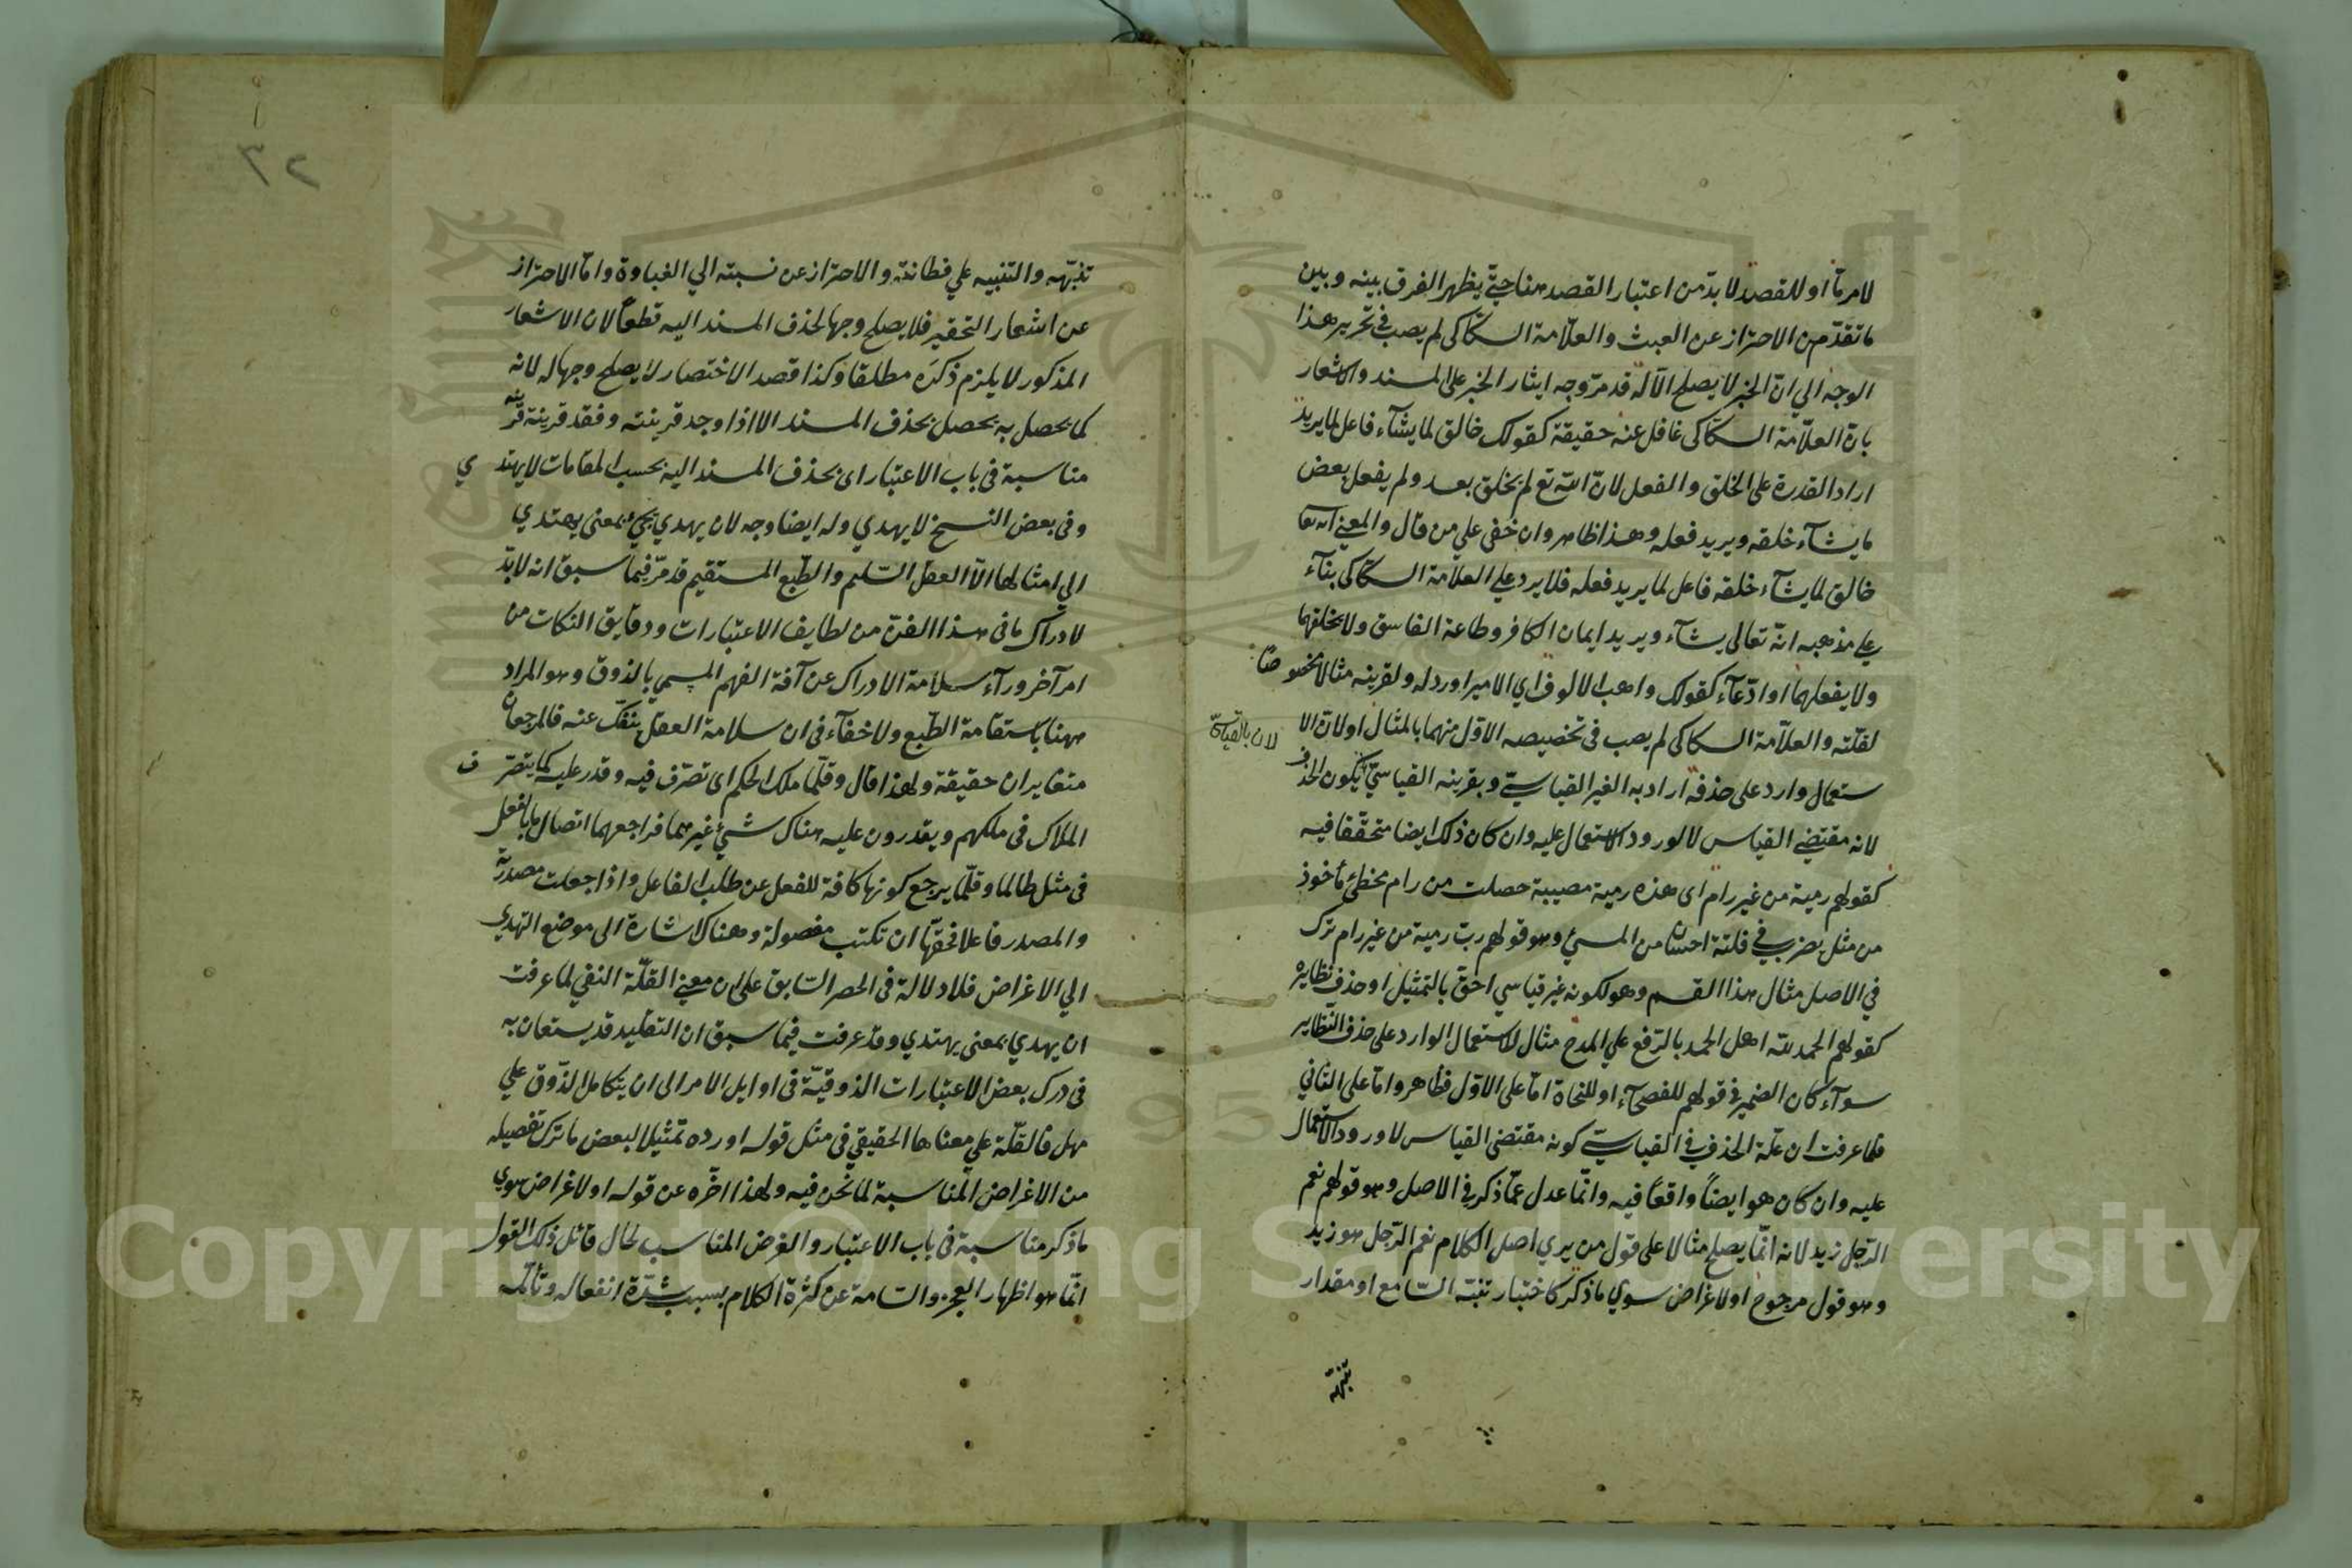 لامر ما او للقصد لا بدّ من اعتبار القصد هنا حتّي يظهر الفرق بينه وبين
ما تقدّم من الاحتراز عن العبث والعلّامة السكّاكى لم يصب في تحرير هذا
الوجه الي انّ الخبر لا يصلح الّا له قد مرّ وجه ايثار الخبر على المسند والاشعار
بانّ العلّامة السكّاكى غافل عنه حقيقة كقولك خالق لما يشآء فاعل لما يريد
اراد القدرة على الخلق والفعل لانّ الله تع لم يخلق بعد ولم يفعل بعض
ما يشآء خلقه ويريد فعله وهذا ظاهر وان خفى علي من قال والمعني انه تعا
خالق لما يشآء خلقه فاعل لما يريد فعله فلا يرد علي العلّامة السكّاكى بنآء
علي مذهبه انّه تعالى يشآء ويريد ايمان الكافر وطاعة الفاسق ولا يخلقهما
ولا يفعلهما او ادّعآء كقولك واهب الالوف اي الامير اورد له ولقرينه مثالا مخصوصا
لقلّته والعلّامة السكاكى لم يصب فى تخصيصه الاوّل منهما بالمثال او لانّ الا
ستعمال وارد على حذفه اراد به الغير القياسيّ وبقرينه القياسيّ لان بالقياسيّ يكون الحذف
لانه مقتضي القياس لا لورود الاستعمال عليه وان كان ذلك ايضا متحقّقا فيه
كقولهم رمية من غير رام اى هذه رمية مصيبة حصلت من رام مخطئ مأخوذ
من مثل يضرب في فلتة احسان من المسئ وهو قولهم ربّ رمية من غير رام ترك
في الاصل مثال هذا القسم وهو لكونه غير قياسي احقّ بالتمثيل او حذف نظايره
كقولهم الحمد لله اهل الحمد بالرّفع علي المدح مثال للاستعمال الوارد على حذف النظاير
سوآء كان الضمير في قولهم للفصحآء او للنحاة امّا على الاوّل فظاهر وامّا على الثاني
فلما عرفت ان علّة الحذف في القياسيّ كونه مقتضى القياس لا ورود الاستعمال
عليه وان كان هو ايضاً واقعاً فيه وانّما عدل عمّا ذكر في الاصل وهو قولهم نعم
الرّجل زيد لانه انّما يصلح مثالا على قول من يري اصل الكلام نعم الرّجل هو زيد
وهو قول مرجوح او لاغراض سوي ما ذكر كاختبار تنبّه السّامع او مقدار
تنبّهه
٣٢
تنبّهه والتنبيه علي فطانته والاحتراز عن نسبته الي الغباوة وامّا الاحتراز
عن اشعار التحقير فلا يصلح وجها لحذف المسند اليه قطعاً لان الاشعار
المذكور لا يلزم ذكره مطلقا وكذا قصد الاختصار لا يصلح وجها له لانه
كما يحصل به يحصل بحذف المسند الا اذا وجد قرينته وفقد قرينة قرينه
مناسبة فى باب الاعتبار اى بحذف المسند اليه بحسب المقامات لا يهتدي
وفى بعض النسخ لا يهدي وله ايضا وجه لان يهدي يجئ بمعنى يهتدي
الي امثالها الّا العقل السّليم والطّبع المستقيم قد مرّ فيما سبق انه لا بدّ
لادراك ما فى هذا الفنّ من لطايف الاعتبارات ودقايق النكات من
امر آخر ورآء سلامة الادراك عن آفة الفهم المسمي بالذوق وهو المراد
ههنا باستقامة الطّبع ولا خفآء فى ان سلامة العقل ينفكّ عنه فالمرجعان
متغايران حقيقة ولهذا قال وقلّما ملك الحكم اى تصرّف فيه وقدر عليه كما يتصرّف
الملاك فى ملكهم ويقدرون عليه هناك شئ غيرهما فراجعهما اتصال ما بالفعل
فى مثل طالما وقلّما يرجع كونها كافة للفعل عن طلب الفاعل واذا جعلت مصدريّة
والمصدر فاعلا فحقّها ان تكتب مفصولة وهناك اشارة الى موضع التهدي
الي الاغراض فلا دلالة فى الحصر السّابق على ان معني القلّة النفي لما عرفت
ان يهدي بمعنى يهتدي وقد عرفت فيما سبق ان التقليد قد يستعان به
فى درك بعض الاعتبارات الذوقيّة فى اوايل الامر الى ان يتكامل الذّوق علي
مهل فالقلّة علي معناها الحقيقي فى مثل قوله اورده تمثيلا لبعض ما ترك تفصيله
من الاغراض المناسبة لما نحن فيه ولهذا اخّره عن قوله او لاغراض سوي
ما ذكر مناسبة فى باب الاعتبار والغرض المناسب لحال قائل ذلك القول
انّما هو اظهار العجز والسّامة عن كثرة الكلام بسبب شدّة انفعاله وتألّمه
Copyright © King Saud University